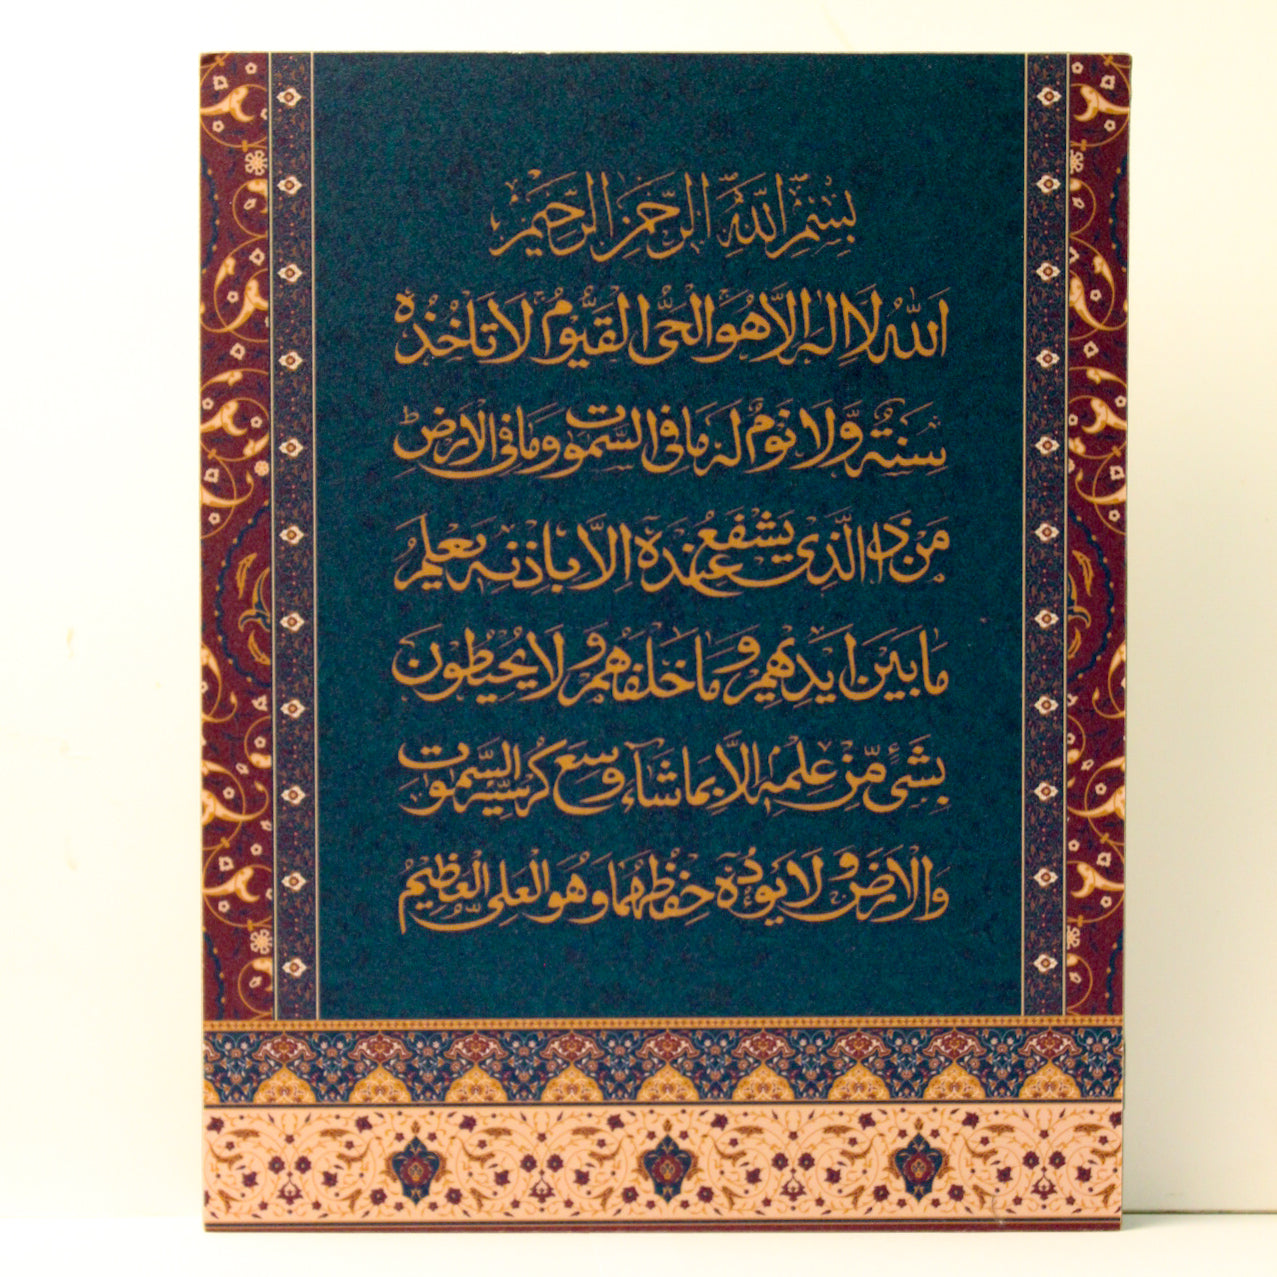 بِسْمِ اللَّهِ الرَّحْمَنِ الرَّحِيمِ
اَللّٰهُ لَا اِلٰهَ اِلَّا هُوَ الْحَیُّ الْقَیُّوْمُ لَا تَاْخُذُهٗ
سِنَةٌ وَّلَا نَوْمٌ لَهٗ مَا فِی السَّمٰوٰتِ وَمَا فِی الْاَرْضِ
مَنْ ذَا الَّذِیْ یَشْفَعُ عِنْدَهٗ اِلَّا بِاِذْنِهٖ یَعْلَمُ
مَا بَیْنَ اَیْدِیْهِمْ وَمَا خَلْفَهُمْ وَلَا یُحِیْطُوْنَ
بِشَیْءٍ مِّنْ عِلْمِهٖ اِلَّا بِمَا شَآءَ وَسِعَ كُرْسِیُّهُ السَّمٰوٰتِ
وَالْاَرْضَ وَلَا یَـُٔوْدُهٗ حِفْظُهُمَا وَهُوَ الْعَلِیُّ الْعَظِیْمُ